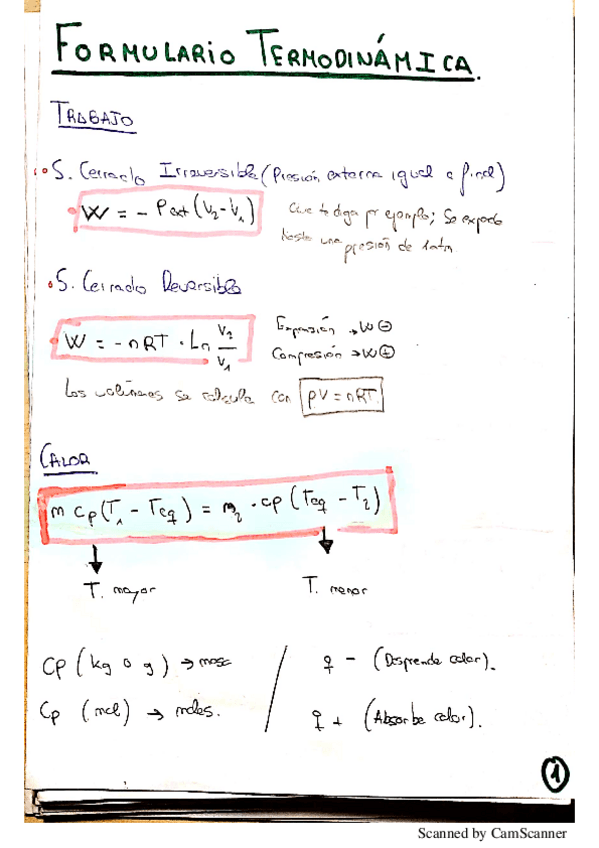 FORMULARIO TERMODINÁMICA.
TRABAJO
S. Cerrado Irreversible (Presión externa igual a final)
W = - Pext (V2 - V1)
Que te diga por ejemplo; Se expande
hasta una presión de 1 atm.
S. Cerrado Reversible
W = -nRT · Ln V2/V1
Expansión → W ⊖
Compresión → W ⊕
Los volúmenes se calcula con PV = nRT.
CALOR
m Cp (T1 - Teq) = m2 · cp (Teq - T2)
T. mayor
T. menor
CP (kg o g) → masa
q - (Desprende calor).
Cp (mol) → moles.
q + (Absorbe calor).
1
Scanned by CamScanner